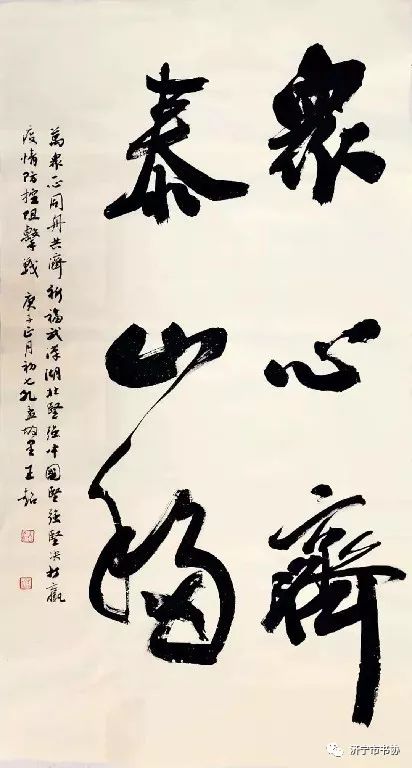 衆心齊
泰山移
萬衆一心同舟共濟祈福武漢湖北堅強中國堅強堅決打贏
疫情防控阻擊戰 庚子正月初七孔孟故里王
济宁市书协